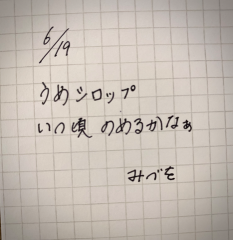 6/19
うめシロップ
いつ頃 のめるかなぁ
みづを